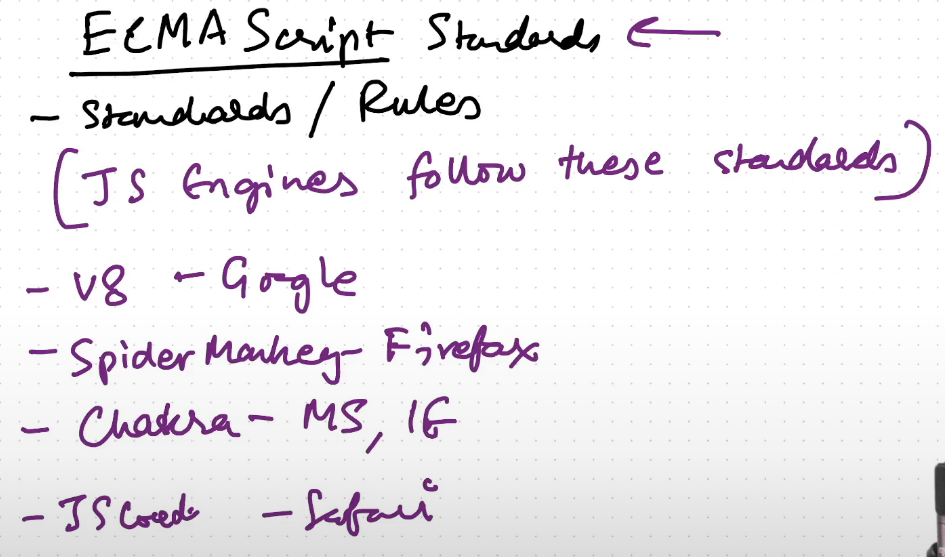 ECMA Script Standards ←
- Standards / Rules
(JS Engines follow these standards)
- V8 - Google
- SpiderMonkey - Firefox
- Chakra - MS, IE
- JS - Safari